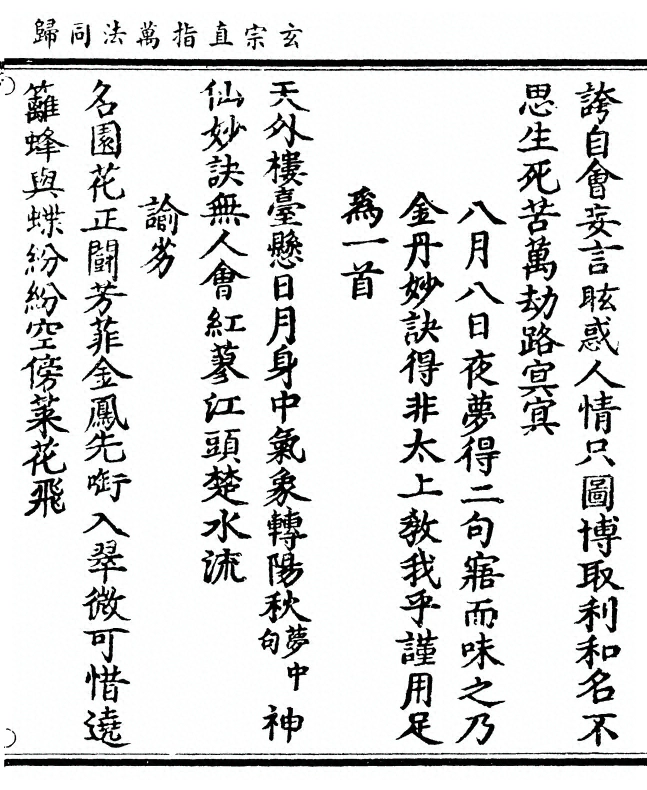 玄宗直指萬法同歸
誇自會妄言眩惑人情只圖博取利和名不
思生死苦萬劫路冥冥
八月八日夜夢得二句寤而味之乃
金丹妙訣得非太上教我乎謹用足
爲一首
天外樓臺懸日月身中氣象轉陽秋夢中句神
仙妙訣無人會紅蓼江頭楚水流
諭劣
名園花正鬪芳菲金鳳先㘅入翠微可惜遶
籬蜂與蝶紛紛空傍菜花飛